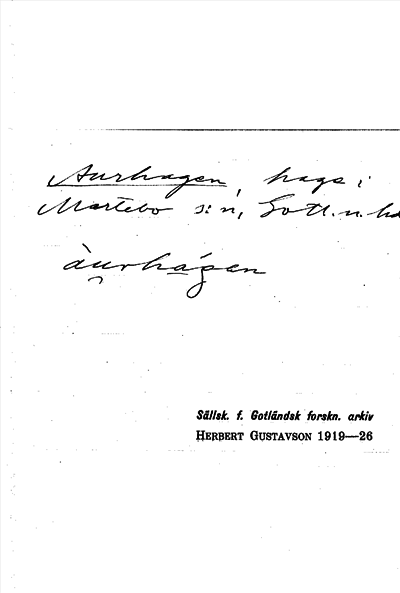 Aurhagen, hage i
Martebo s:n, Gotl. n. hd
àurhágen
Sällsk. f. Gotländsk forskn. arkiv
HERBERT GUSTAVSON 1919—26